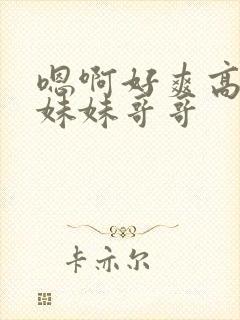 嗯啊好爽高
妹妹哥哥
卡亦尔